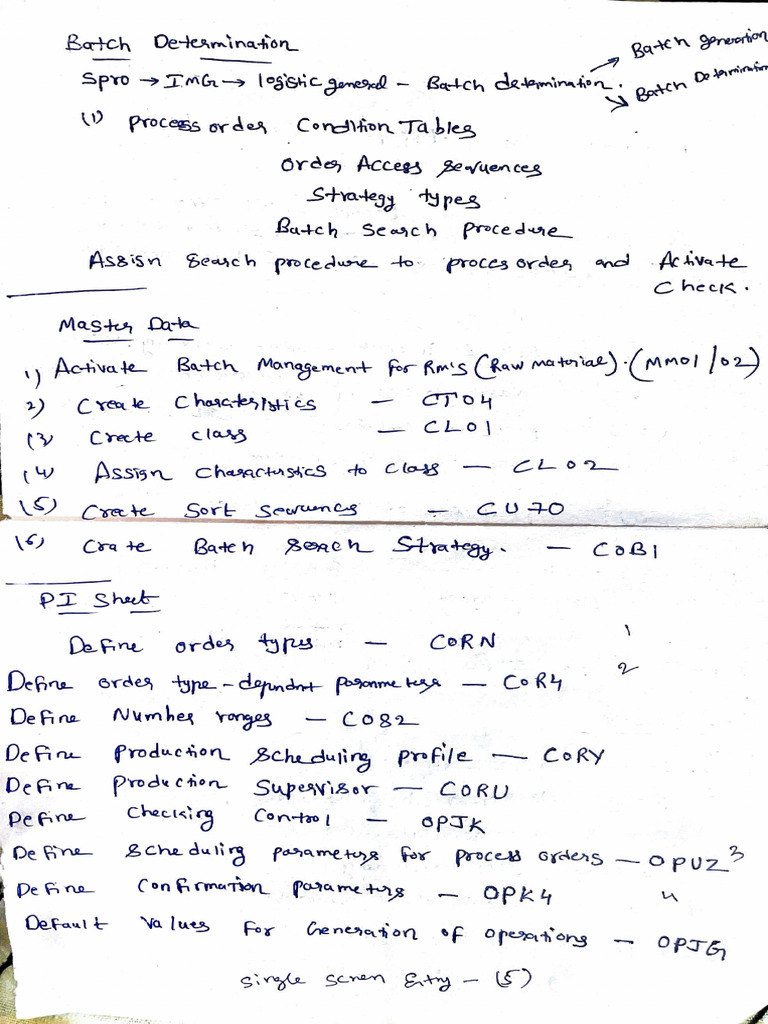 Batch Determination
Spro → IMG → logistic general - Batch determination.
Batch generation
Batch Determination
(1) Process order Condition Tables
Order Access sequences
Strategy types
Batch search procedure
Assign search procedure to proces order and Activate
Check.
Master Data
1) Activate Batch Management for RM's (Raw material). (MM01/02)
2) Create Charateristics - CT04
(3) Create class - CL01
(4) Assign Characteristics to class - CL02
(5) Create Sort Sequences - CU70
(6) Crate Batch Serach Strategy. - COB1
PI Sheet
Define order types - CORN 1
Define order type-dependnt paranmeters - COR4 2
Define Number ranges - CO82
Define Production Scheduling profile - CORY
Define Production Supervisor - CORU
Define Checking Control - OPJK
Define Scheduling parameters for process orders - OPUZ 3
Define Confirmation parameters - OPK4 4
Default Values for Generation of operations - OPJG
single scren Entry - (5)